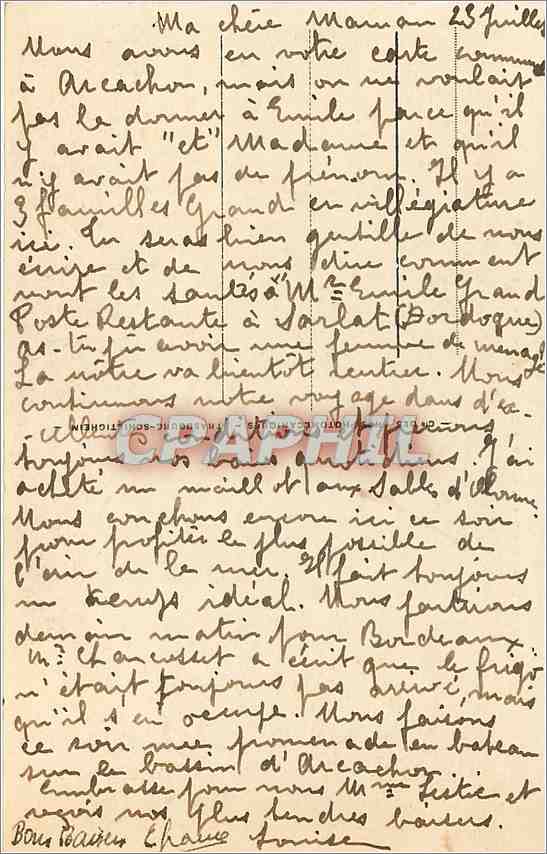 Ma chère Maman 23 Juillet
Nous avons eu votre carte commune
à Arcachon, mais on ne voulait
pas la donner à Emile parce qu'il
y avait "et" Madame et qu'il
n'y avait pas de prénom. Il y a
3 familles Grand en villégiature
ici. Tu seras bien gentille de nous
écrire et de nous dire comment
vont les santés à Mr Emile Grand
Poste Restante à Sarlat (Dordogne)
as-tu pu avoir une femme de ménage
La nôtre va bientôt rentrer. Nous
continuons notre voyage dans d'ex-
cellentes conditions et
toujours nos bains quotidiens. J'ai
acheté un maillot aux Sables d'Olonne
Nous couchons encore ici ce soir
pour profiter le plus possible de
l'air de la mer. Il fait toujours
un temps idéal. Nous partirons
demain matin pour Bordeaux.
Mr Chancosset a écrit que le frigo
n'était toujours pas arrivé, mais
qu'il s'en occupe. Nous faisons
ce soir une promenade en bateau
sur le bassin d'Arcachon.
Embrasse pour nous Mme et
reçois nos plus tendres baisers.
Bons Baisers Louise
CIE DES ARTS PHOTOMÉCANIQUES - STRASBOURG-SCHILTIGHEIM
CPAPHIL